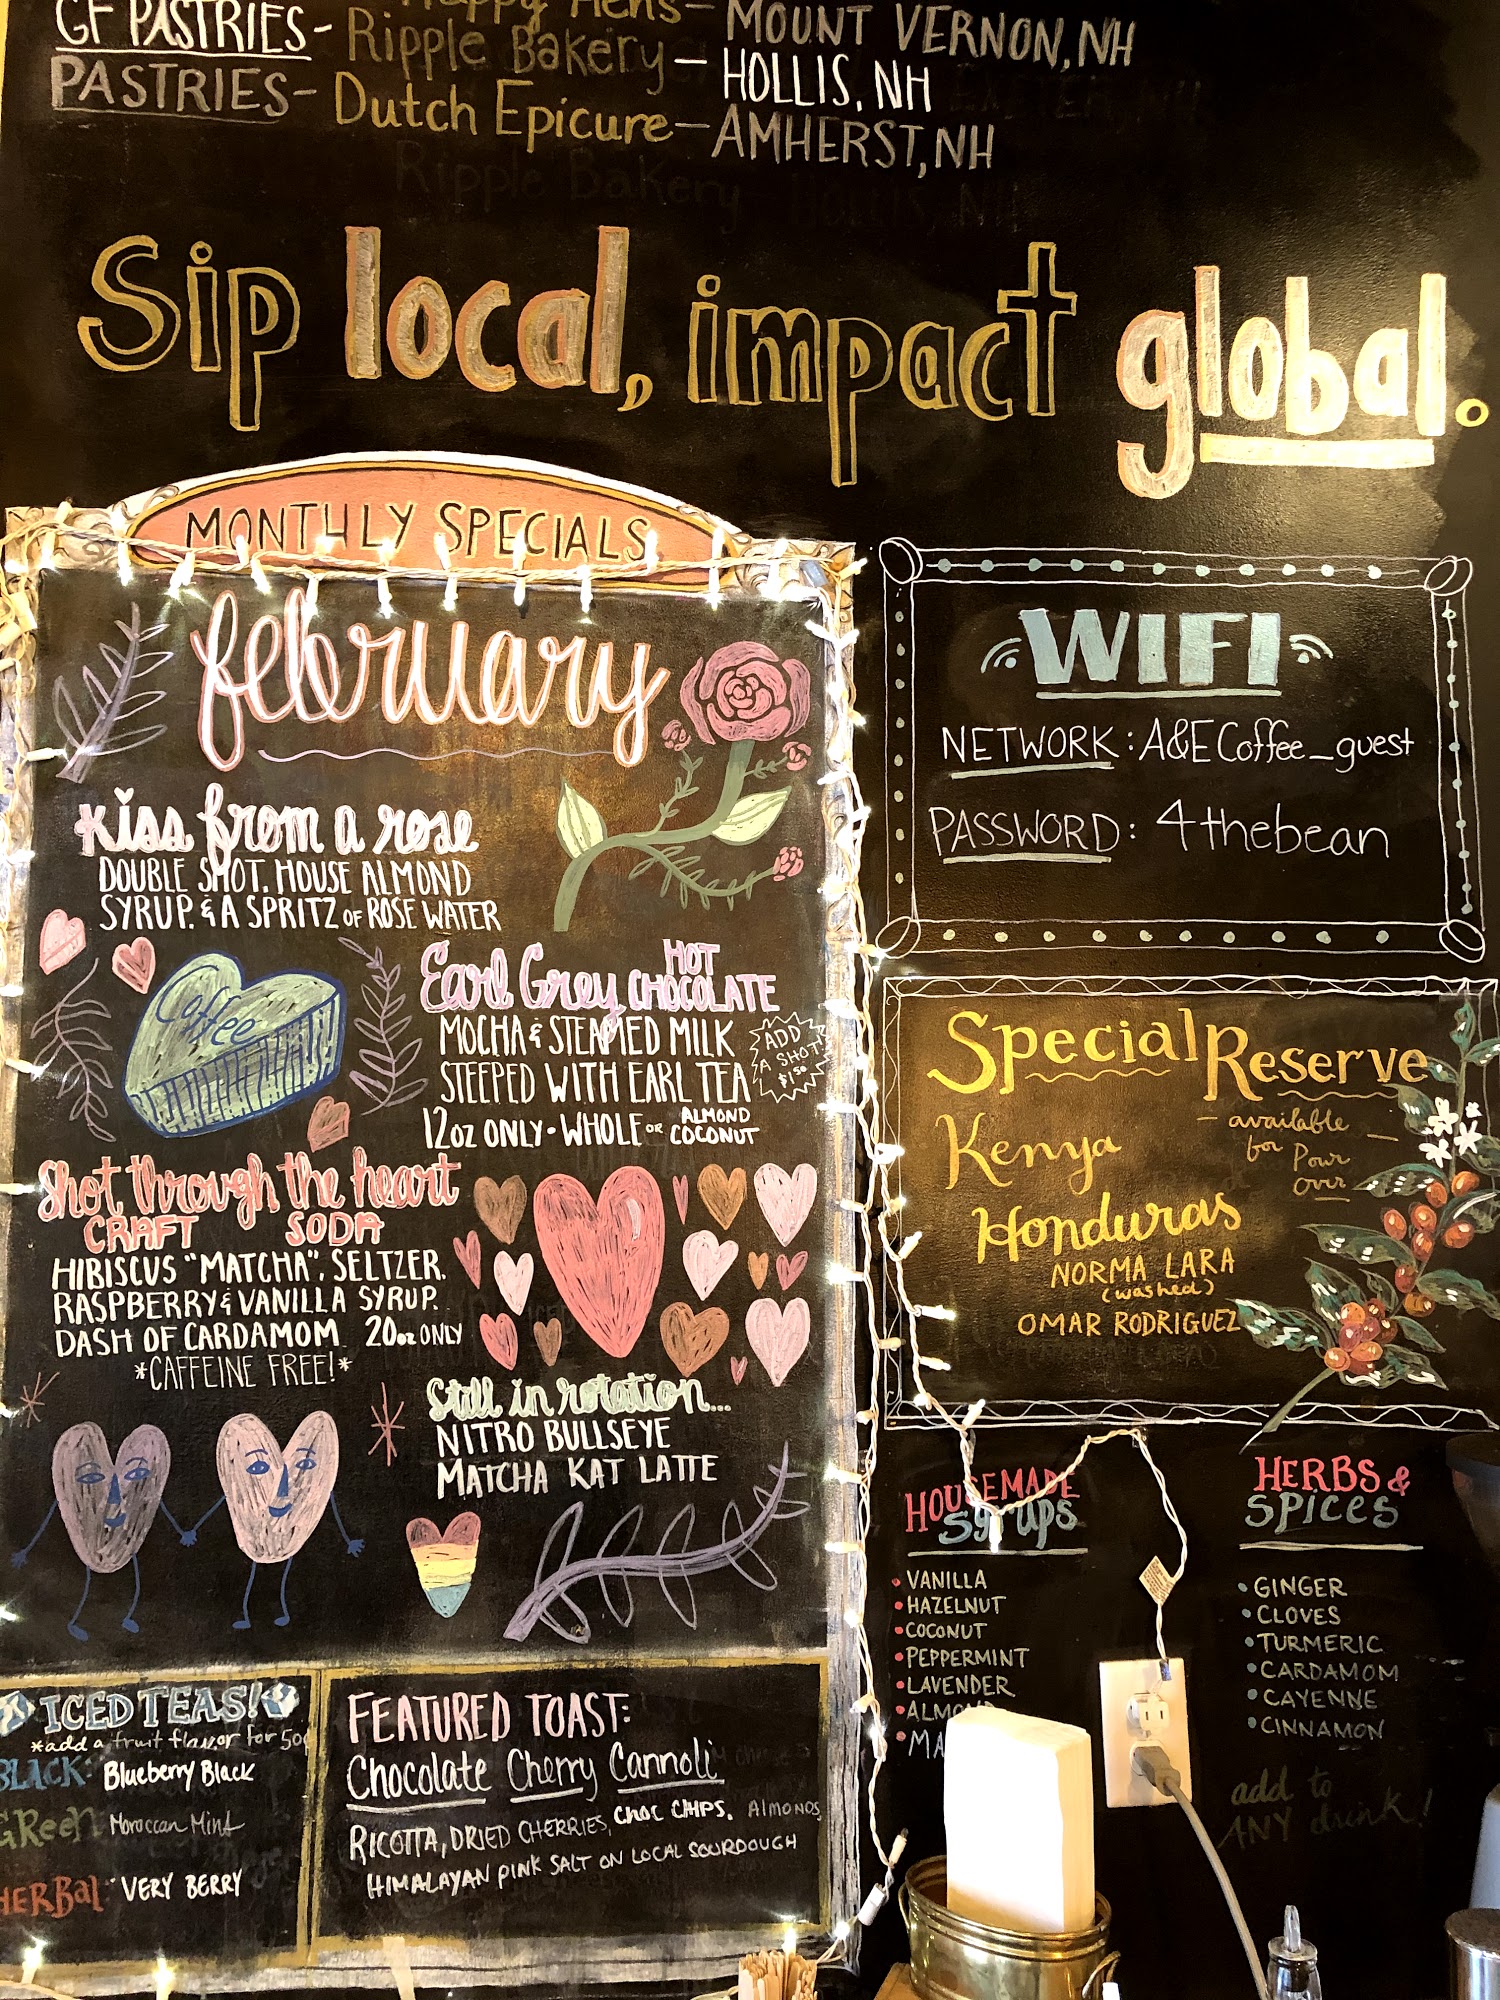 Happy Hens-
GF PASTRIES- Ripple Bakery- MOUNT VERNON, NH
PASTRIES- Dutch Epicure- HOLLIS, NH
AMHERST, NH
Ripple Bakery
Sip local, impact global.
MONTHLY SPECIALS
february
Kiss from a rose
DOUBLE SHOT, HOUSE ALMOND
SYRUP, & A SPRITZ OF ROSE WATER
Coffee
Earl Grey HOT CHOCOLATE
MOCHA & STEAMED MILK
STEEPED WITH EARL TEA
ADD
A SHOT!
$1.50
12oz ONLY • WHOLE OR ALMOND
COCONUT
Shot through the heart
CRAFT SODA
HIBISCUS "MATCHA", SELTZER,
RASPBERRY & VANILLA SYRUP,
DASH OF CARDAMOM 20oz ONLY
*CAFFEINE FREE!*
Still in rotation...
NITRO BULLSEYE
MATCHA KAT LATTE
ICED TEAS!
*add a fruit flavor for 50¢
BLACK: Blueberry Black
GREEN: Moroccan Mint
HERBAL: VERY BERRY
FEATURED TOAST:
Chocolate Cherry Cannoli
RICOTTA, DRIED CHERRIES, CHOC CHIPS, ALMONDS
HIMALAYAN PINK SALT ON LOCAL SOURDOUGH
WIFI
NETWORK: A&ECoffee_guest
PASSWORD: 4thebean
Special Reserve
- available
for Pour
Over -
Kenya
Honduras
NORMA LARA
(washed)
OMAR RODRIGUEZ
HOUSEMADE
SYRUPS
• VANILLA
• HAZELNUT
• COCONUT
• PEPPERMINT
• LAVENDER
• ALMO
• MA
HERBS &
SPICES
• GINGER
• CLOVES
• TURMERIC
• CARDAMOM
• CAYENNE
• CINNAMON
add to
ANY drink!